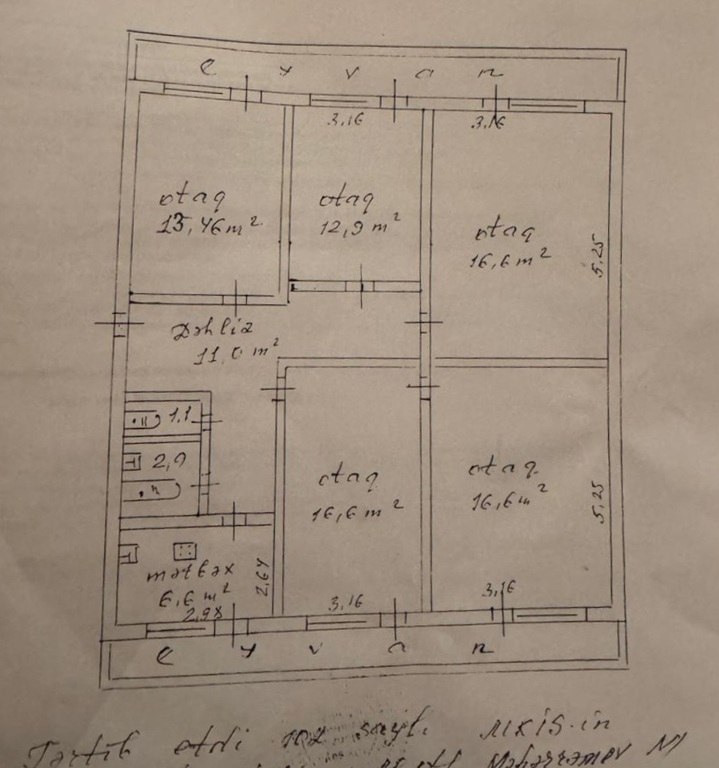 e y v a n
3,16
3,16
otaq
13,46 m²
otaq
12,9 m²
otaq
16,6 m²
5,25
Dəhliz
11,0 m²
1,1
2,9
otaq
16,6 m²
otaq
16,6 m²
5,25
mətbəx
6,6 m²
2,98
2,64
3,16
3,16
e y v a n
Tərtib etdi 102 saylı MKİS-in